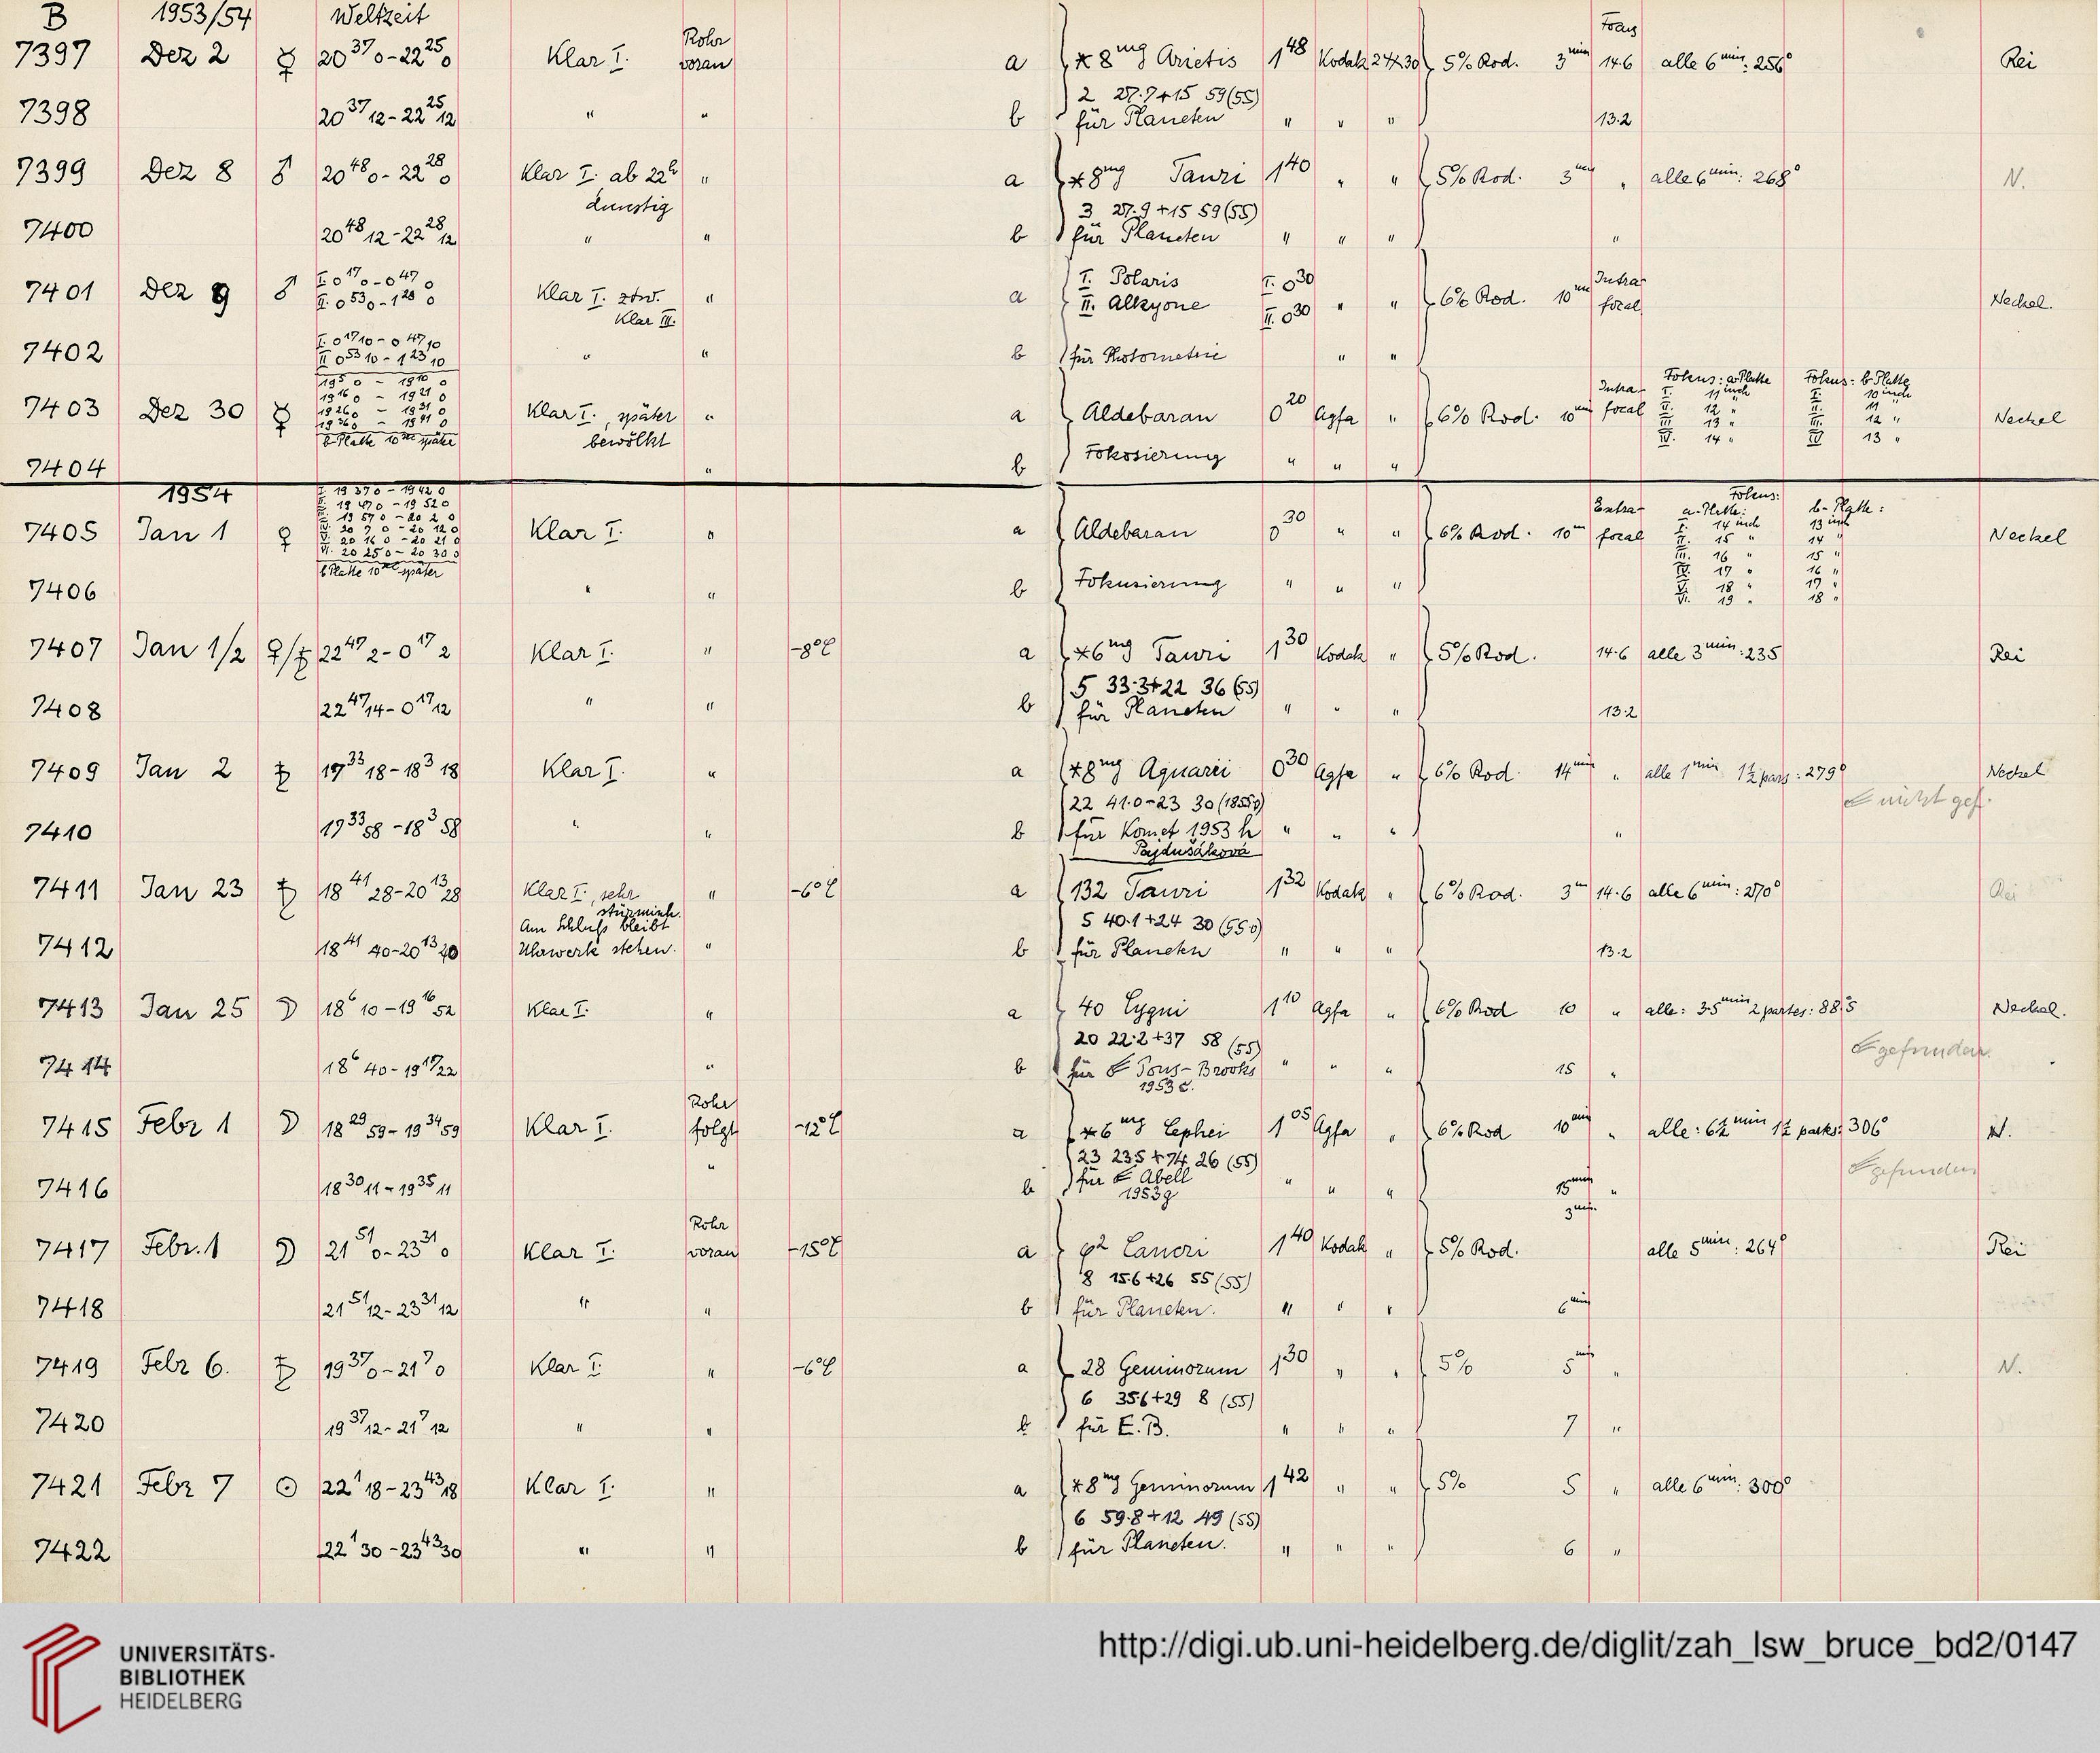 B 1953/54 Weltzeit Focus
7397 Dez 2 ☿ 20 37 0 - 22 25 0 Klar I. Rohr voran a * 8 mg Arietis 1 48 Kodak 24x30 5% Rod. 3 min 14.6 alle 6 min: 256° Rei
2 27.7 +15 59 (55)
7398 20 37 12 - 22 25 12 " " b für Planeten " " " 13.2
7399 Dez 8 ♂ 20 48 0 - 22 28 0 Klar I. ab 22h dunstig " a * 8 mg Tauri 1 40 " " 5% Rod. 3 min " alle 6 min: 268° N.
3 27.9 +15 59 (55)
7400 20 48 12 - 22 28 12 " " b für Planeten " " " "
7401 Dez 9 ♂ I. 0 17 0 - 0 47 0 Klar I. ztw. " a I. Polaris I. 0 30 " " 6% Rod. 10 min Intra-
II. 0 53 0 - 1 23 0 Klar III. II. Alkyone II. 0 30 focal Neckel.
7402 I. 0 17 10 - 0 47 10 " " b für Photometrie " "
II 0 53 10 - 1 23 10
19 5 0 - 19 10 0 Intra- Fokus: a Platte Fokus: b Platte
19 16 0 - 19 21 0 I. 11 inch I. 10 inch
7403 Dez 30 ☿ 19 26 0 - 19 31 0 Klar I., später " a Aldebaran 0 20 Agfa " 6% Rod. 10 min focal II. 12 " II. 11 " Neckel
19 36 0 - 19 41 0 bewölkt III. 13 " III. 12 "
b-Platte 10 sec später IV. 14 " IV 13 "
7404 " b Fokosierung " " "
1954 I. 19 37 0 - 19 42 0 Fokus:
II. 19 47 0 - 19 52 0 Extra- a-Platte: b-Platte:
III. 19 57 0 - 20 2 0 I. 14 inch 13 inch
7405 Jan 1 ♀ IV. 20 7 0 - 20 12 0 Klar I. " a Aldebaran 0 30 " " 6% Rod. 10 m focal II. 15 " 14 " Neckel
V. 20 16 0 - 20 21 0 III. 16 " 15 "
VI. 20 25 0 - 20 30 0 IV. 17 " 16 "
b Platte 10 sec später V. 18 " 17 "
7406 " " b Fokusierung " " " VI. 19 " 18 "
7407 Jan 1/2 ♀/♄ 22 47 2 - 0 17 2 Klar I. " -8°C a * 6 mg Tauri 1 30 Kodak " 5% Rod. 14.6 alle 3 min: 235 Rei
5 33.3 +22 36 (55)
7408 22 47 14 - 0 17 12 " " b für Planeten " " " 13.2
7409 Jan 2 ♄ 17 33 18 - 18 3 18 Klar I. " a * 8 mg Aquarii 0 30 Agfa " 6% Rod. 14 min " alle 1 min 1½ pars: 279° Neckel
22 41.0 -23 30 (1855.0) nicht gef.
7410 17 33 58 - 18 3 58 " " b für Komet 1953 h " " " "
Pajdušáková
7411 Jan 23 ♄ 18 41 28 - 20 13 28 Klar I., sehr " -6°C a 132 Tauri 1 32 Kodak " 6% Rod. 3 m 14.6 alle 6 min: 270° Rei
stürmisch.
Am Schluß bleibt 5 40.1 +24 30 (55.0)
7412 18 41 40 - 20 13 40 Uhrwerk stehen. " b für Planeten " " " 13.2
7413 Jan 25 ☽ 18 6 10 - 19 16 52 Klar I. " a 40 Cygni 1 10 Agfa " 6% Rod 10 " alle: 3.5 min 2 partes: 88.5 Neckel.
20 22.2 +37 58 (55) gefunden.
7414 18 6 40 - 19 17 22 " b für Pons-Brooks " " " 15 "
1953 c.
7415 Febr 1 ☽ 18 29 59 - 19 34 59 Klar I. Rohr folgt -12°C a * 6 mg Cephei 1 05 Agfa " 6% Rod 10 min " alle: 6½ min 1½ parts: 306° N.
23 23.5 +74 26 (55) gefunden
7416 18 30 11 - 19 35 11 " b für Abell " " " 15 min "
1953 g
7417 Febr. 1 ☽ 21 51 0 - 23 31 0 Klar I. Rohr voran -15°C a φ2 Cancri 1 40 Kodak " 5% Rod. 3 min alle 5 min: 264° Rei
8 15.6 +26 55 (55)
7418 21 51 12 - 23 31 12 " " b für Planeten. " " " 6 min
7419 Febr 6. ♄ 19 37 0 - 21 7 0 Klar I. " -6°C a 28 Geminorum 1 30 " " 5% 5 min " N.
6 35.6 +29 8 (55)
7420 19 37 12 - 21 7 12 " " b für E.B. " " " 7 "
7421 Febr 7 ☉ 22 1 18 - 23 43 18 Klar I. " a * 8 mg Geminorum 1 42 " " 5% 5 " alle 6 min: 300°
6 59.8 +12 49 (55)
7422 22 1 30 - 23 43 30 " " b für Planeten. " " " 6 "
UNIVERSITÄTS-
BIBLIOTHEK
HEIDELBERG
http://digi.ub.uni-heidelberg.de/diglit/zah_lsw_bruce_bd2/0147